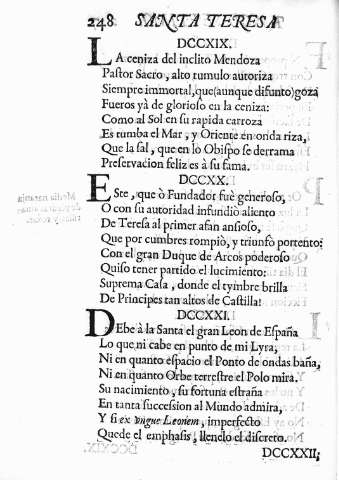 248 SANTA TERESA
DCCXIX.
LA ceniza del inclito Mendoza
Pastor Sacro, alto tumulo autoriza
Siempre immortal, que (aunque difunto) goza
Fueros yà de glorioso en la ceniza:
Como al Sol en su rapida carroza
Es tumba el Mar, y Oriente en onda riza,
Que la sal, que en lo Obispo se derrama
Preservacion feliz es à su fama.
DCCXX.
ESte, que ò Fundador fuè generoso,
O con su autoridad infundiò aliento
De Teresa al primer afan ansioso,
Que por cumbres rompiò, y triunfò portento:
Con el gran Duque de Arcos poderoso
Quiso tener partido el lucimiento:
Suprema Casa, donde el tymbre brilla
De Principes tan altos de Castilla!
DCCXXI.
DEbe à la Santa el gran Leon de España
Lo que ni cabe en punto de mi Lyra,
Ni en quanto espacio el Ponto de ondas baña,
Ni en quanto Orbe terrestre el Polo mira.
Su nacimiento, su fortuna estraña
En tanta succession al Mundo admira,
Y si ex ungue Leonem, imperfecto
Quede el emphasis, llenelo el discreto.
DCCXXII;